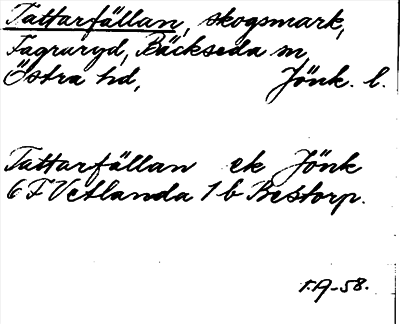 Tattarfällan, skogsmark,
Fagraryd, Bäckseda sn,
Östra hd, Jönk. l.
Tattarfällan ek Jönk
6 F Vetlanda 1 b Bestorp.
T.A-58.